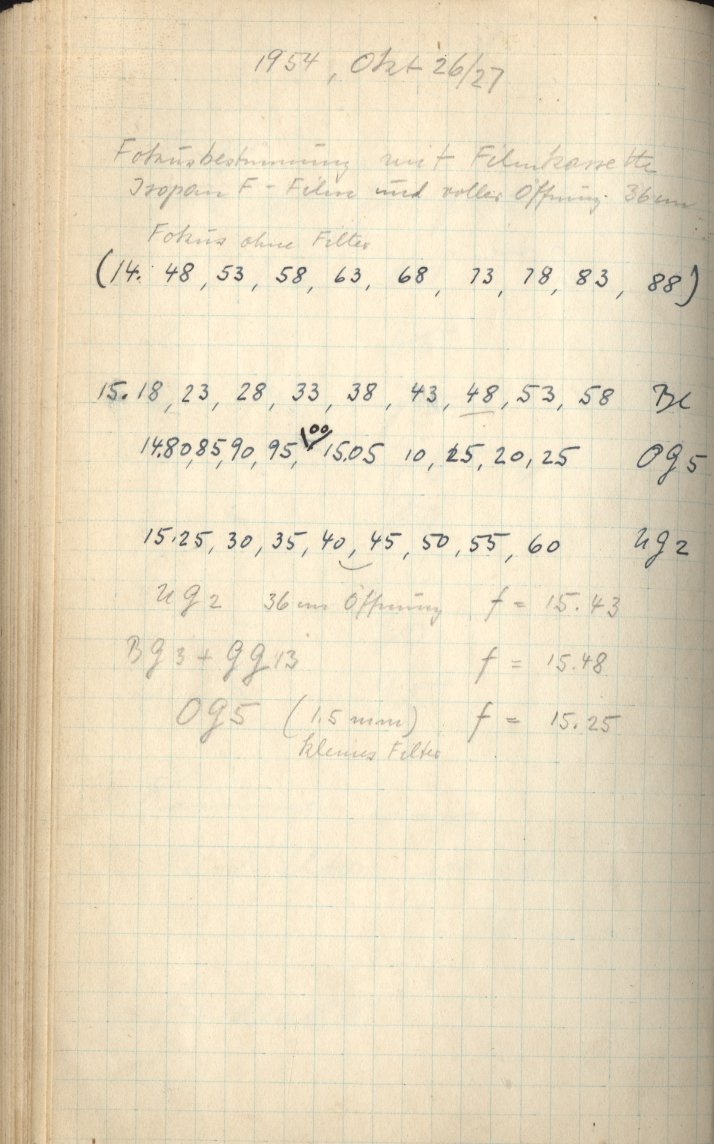 1954, Okt 26/27
Fokusbestimmung mit Filmkassette
Isopan F - Film und voller Öffnung 36 cm
Fokus ohne Filter
(14. 48, 53, 58, 63, 68, 73, 78, 83, 88)
15.18, 23, 28, 33, 38, 43, 48, 53, 58
14.80, 85, 90, 95, 00 15.05 10, 15, 20, 25 OG5
15.25, 30, 35, 40, 45, 50, 55, 60 UG2
UG2 36 cm Öffnung f = 15.43
BG3 + GG13 f = 15.48
OG5 (1.5 mm) f = 15.25
kleines Filter